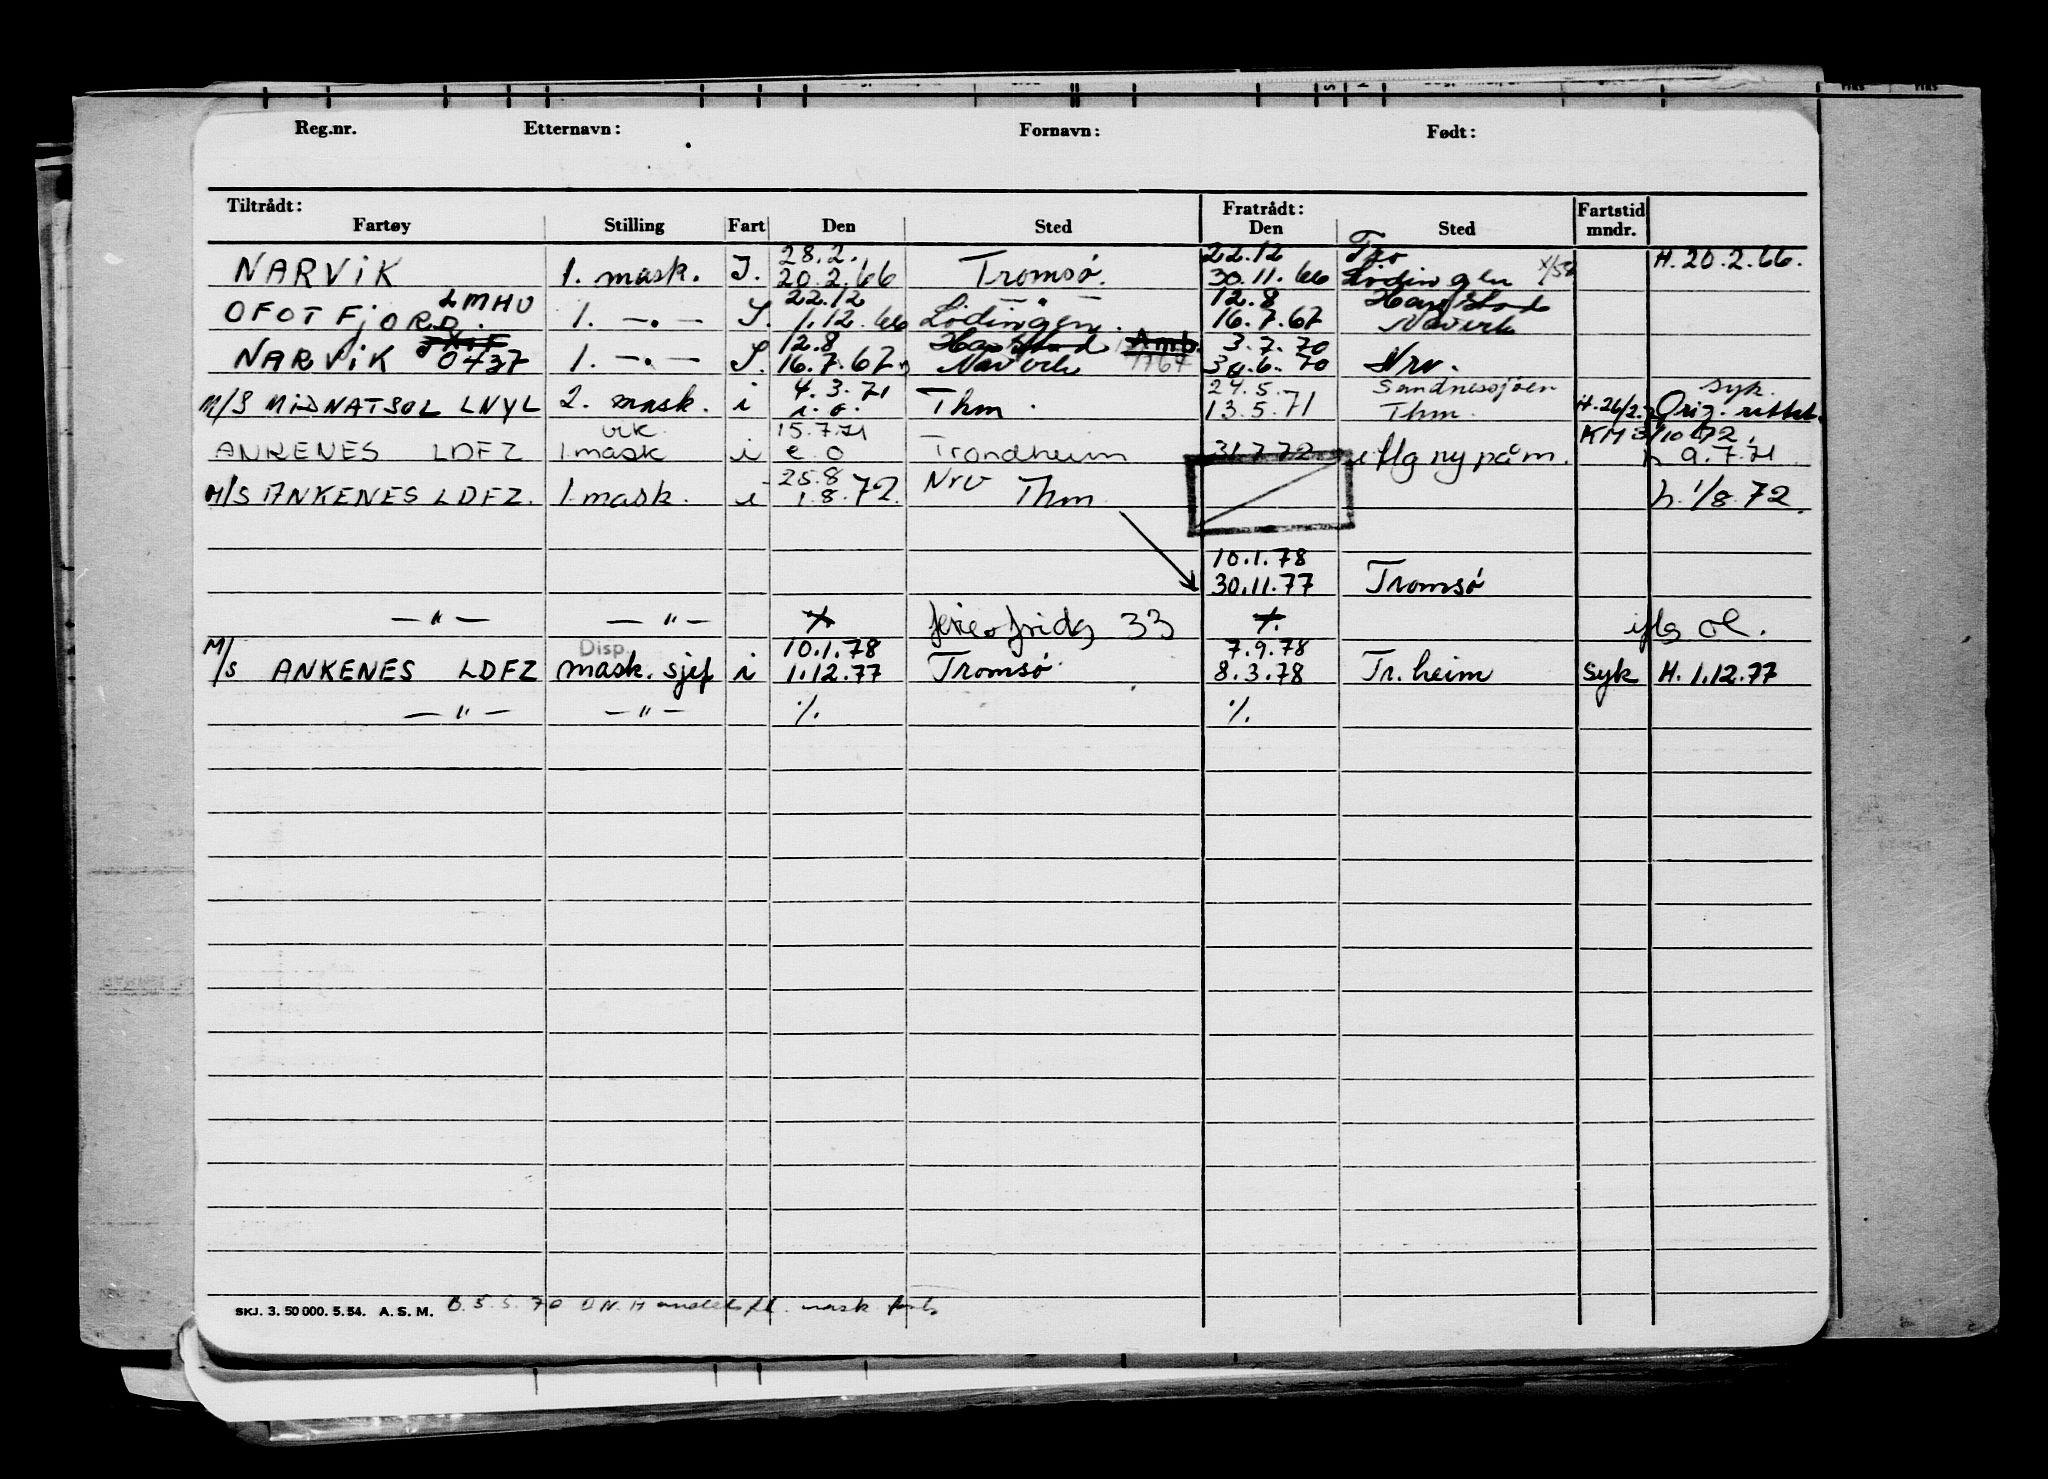 Reg.nr. Etternavn: Fornavn: Født:
Tiltrådt: Fratrådt: Fartstid
Fartøy Stilling Fart Den Sted Den Sted mndr.
28.2. 22.12
NARVIK 1. mask. I. 20.2.66 Tromsø. 30.11.66 Lødingen H. 20.2.66.
LMHU 22.12 12.8 Harstad
OFOTFJORD. 1. —.— I. 1.12.66 Lødingen. 16.7.67 Narvik
12.8 Harstad Amb. 3.7.70
NARVIK 0737 1. —.— I. 16.7.67 Narvik 30.6.70 Nrv.
4.3.71 24.5. Sandnessjøen syk.
M/S MIDNATSOL LNYL 2. mask. i i.o. Thm. 13.5.71 Thm. H. 26/2. Orig. rettet.
vik. 15.7.71 KM 3/10 72.
ANKENES LDFZ 1 mask i e.o Trondheim 31.7.72 iflg ny påm. h 9.7.71
25.8 Nrv
M/S ANKENES LDFZ. 1 mask. i 1.8.72. Thm h. 1/8.72.
10.1.78
30.11.77 Tromsø
— " — — " — ⁒ ferie o frida 33 ⁒ iflg ol.
Disp. 10.1.78 7.9.78
M/S ANKENES LDFZ mask. sjef i 1.12.77 Tromsø 8.3.78 Tr.heim syk H. 1.12.77
— " — — " — ⁒ ⁒
SKJ. 3. 50 000. 5. 54. A. S. M. B. 5.5.70 mask